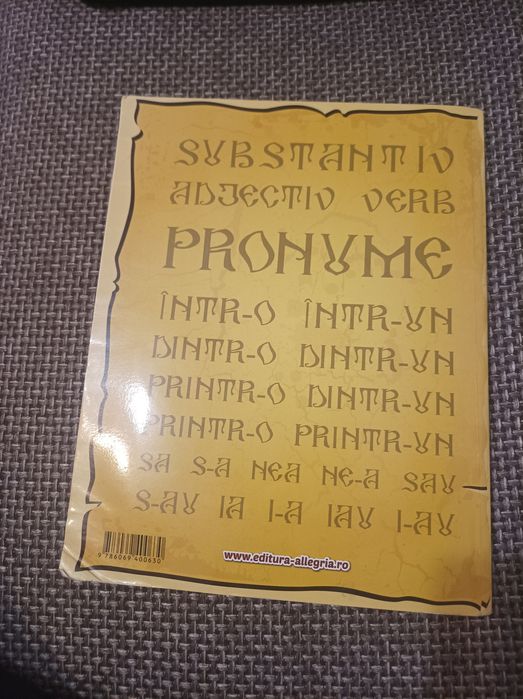 SUBSTANTIV
ADJECTIV VERB
PRONUME
ÎNTR-O ÎNTR-UN
DINTR-O DINTR-UN
PRINTR-O DINTR-UN
PRINTR-O PRINTR-UN
SA S-A NEA NE-A SAU
S-AU IA I-A IAU I-AU
9 786069 400630
www.editura-allegria.ro